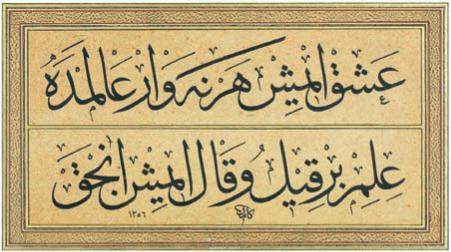 عشق ايمش هر نه وار عالمده
علم بر قيل و قال ايمش انجق
١٣٥٦